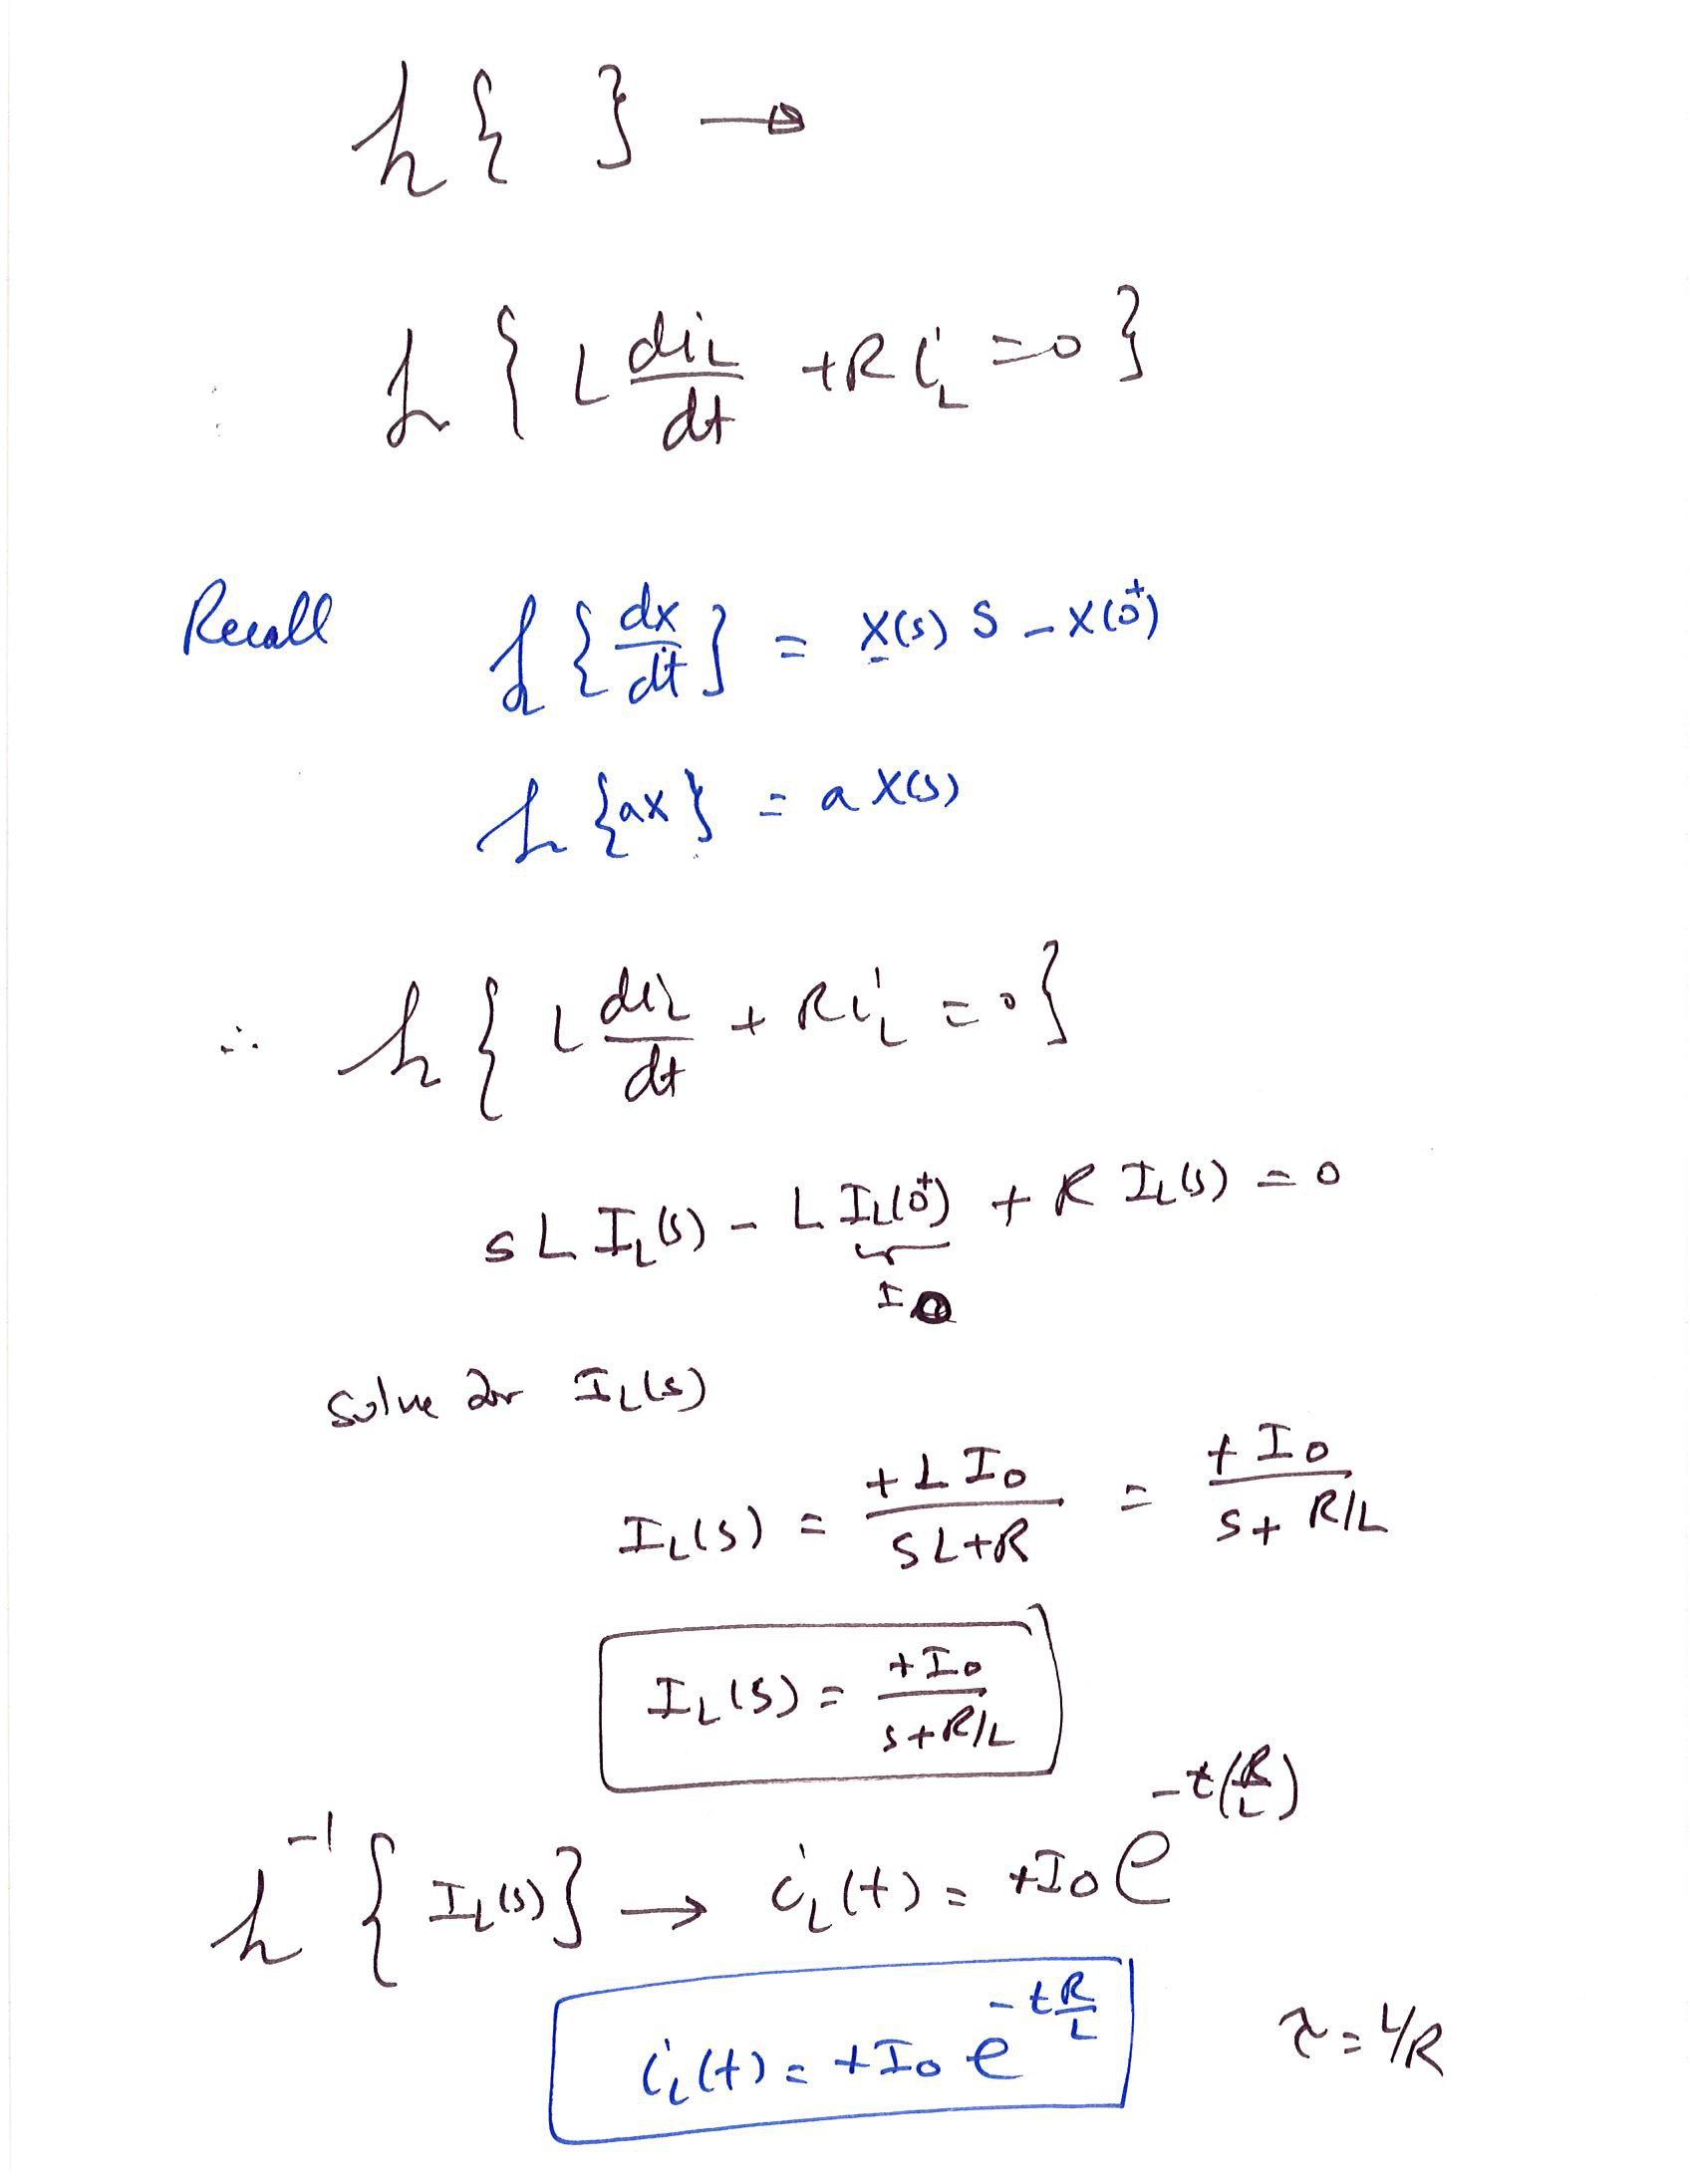 ℒ { } →
ℒ { L di_L/dt + R i_L = 0 }
Recall ℒ { dx/dt } = X(s) S - X(0⁺)
ℒ {ax} = a X(s)
∴ ℒ { L di_L/dt + R i_L = 0 }
s L I_L(s) - L I_L(0⁺) + R I_L(s) = 0
I0
Solve for I_L(s)
I_L(s) = +L I0 / (SL+R) = +I0 / (S + R/L)
I_L(s) = +I0 / (s+R/L)
ℒ⁻¹ { I_L(s) } → i_L(t) = +I0 e^(-t(R/L))
i_L(t) = +I0 e^(-t R/L) τ = L/R